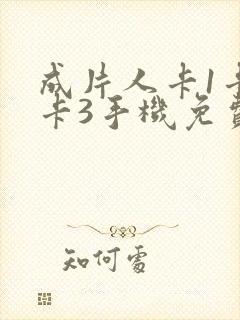 成片人卡1卡
卡3手機免費
知何處